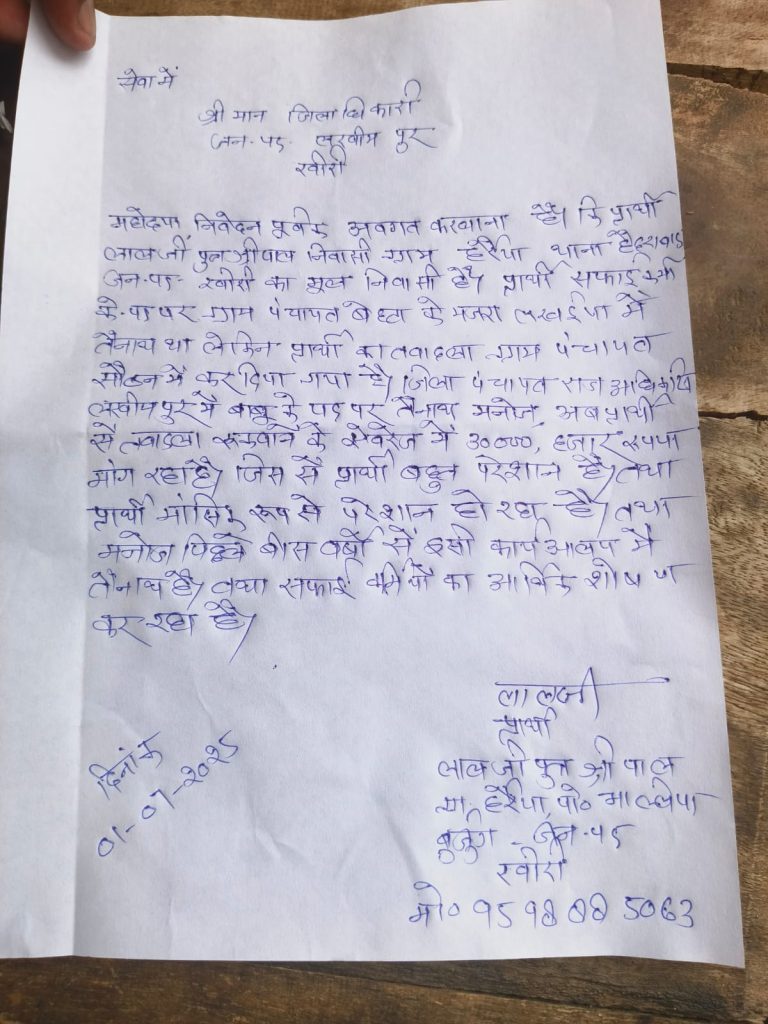 सेवा में
श्री मान जिलाधिकारी
जन-पद लखीम पुर
खीरी
महोदया निवेदन पूर्वक अवगत करवाना है। कि प्रार्थी
लालजी पुत्र श्रीपाल निवासी ग्राम हरैया थाना हैदराबाद
जन-पद- खीरी का मूल निवासी है। प्रार्थी सफाई कर्मी
के पद पर ग्राम पंचायत बेहटा के मजरा लखईपा में
तैनाथ था लेकिन प्रार्थी का तवादला ग्राम पंचायत
सौठन में कर दिया गया है। जिला पंचायत राज
लखीमपुर में बाबू के पद पर तैनाथ मनोज, अब प्रार्थी
से तवादला रुकवाने के ऐवरेज में 30000, हजार रुपया
मांग रहा है। जिस से प्रार्थी बहुत परेशान है। तथा
प्रार्थी मांसिक रूप से परेशान हो रहा है। तथा
मनोज पिछले बीस वर्षो से इसी कार्यआलय में
तैनाथ है। तथा सफाई कर्मियों का आर्थिक शोषण
कर रहा है।
लालजी
प्रार्थी
लालजी पुत्र श्री पाल
ग्रा. हरैया, पो०
बुजुर्ग जन-पद
खीरी
मो० ९५९8 88 5063
दिनांक
01-07-२०२५